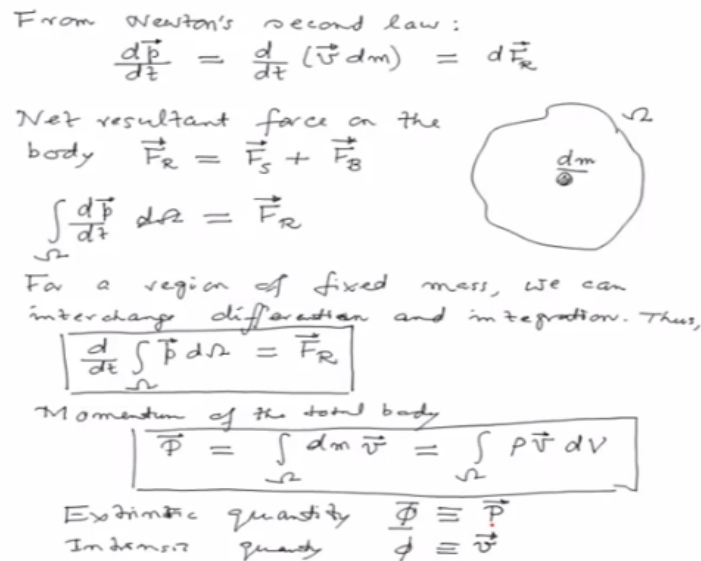 From Newton's second law :
$\frac{d\vec{p}}{dt} = \frac{d}{dt} (\vec{v} \, dm) = d\vec{F}_R$
Net resultant force on the
body $\vec{F}_R = \vec{F}_S + \vec{F}_B$
Ω
dm
$\int_\Omega \frac{d\vec{p}}{dt} \, d\Omega = \vec{F}_R$
For a region of fixed mass, we can
interchange differention and integration. Thus,
$\frac{d}{dt} \int_\Omega \vec{p} \, d\Omega = \vec{F}_R$
Momentum of the total body
$\vec{P} = \int_\Omega dm \, \vec{v} = \int_\Omega \rho \vec{v} \, dV$
Extrinsic quantity $\underline{\Phi} \equiv \vec{P}$
Intensiz quanty $\phi \equiv \vec{v}$